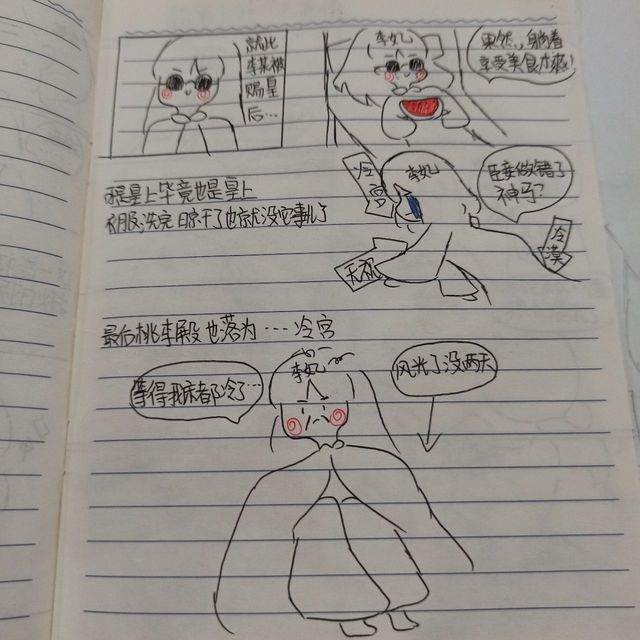 就此
李某被
赐皇
后…
李妃
果然,躺着
享受美食才爽!
可是皇上毕竟也是皇上
衣服洗完晾干了也就没它事儿了
冷
宫
李妃
臣妾做错了
神马?
冷
漠
无视
最后桃李殿也落为…冷宫
等得我床都冷了…
李妃
风光了没两天